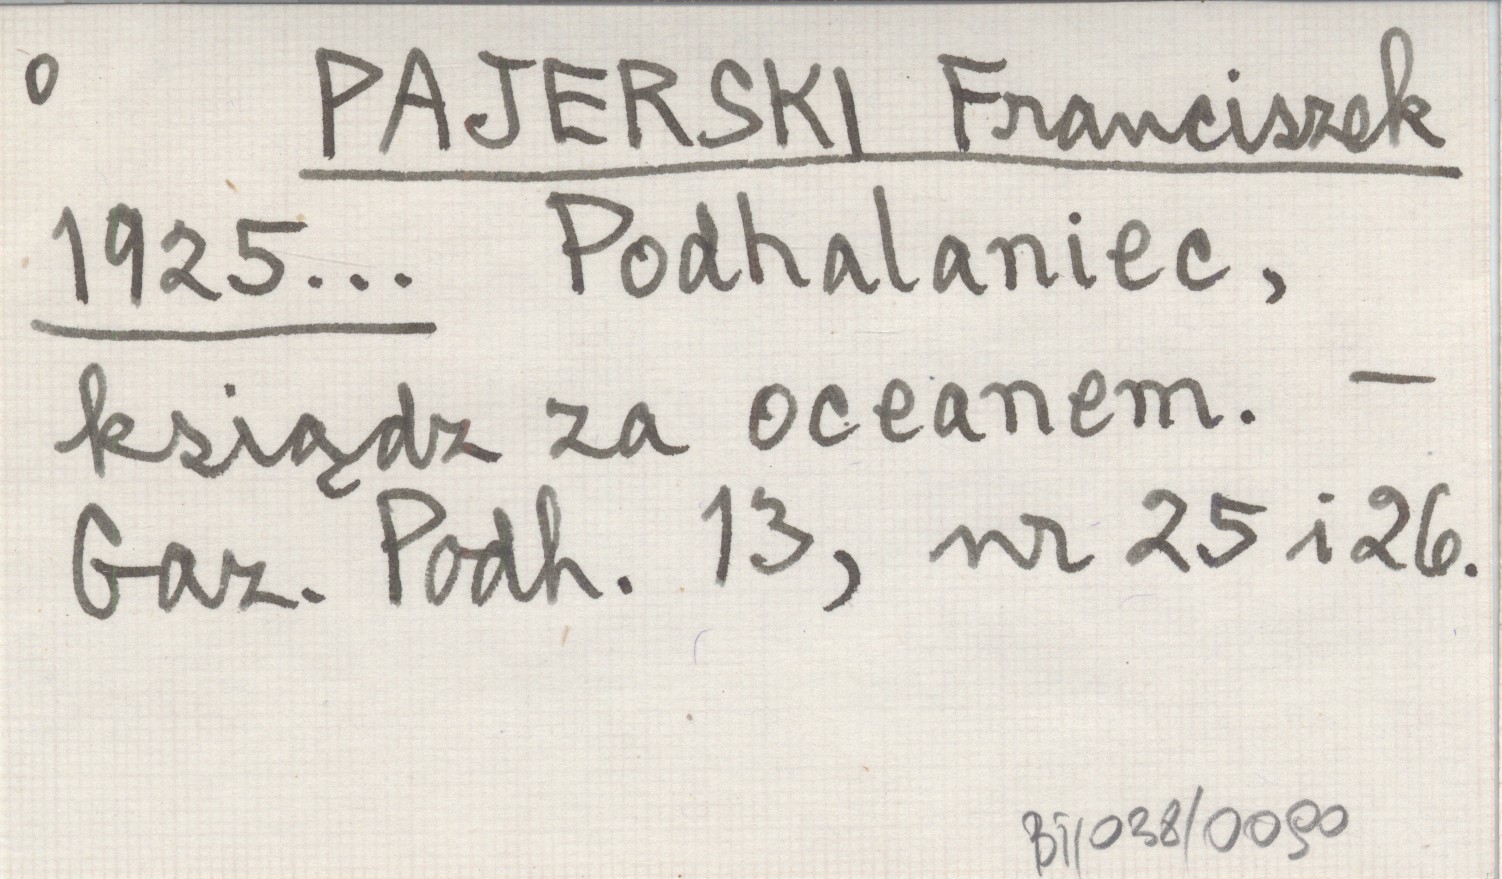 o PAJERSKI Franciszek
1925... Podhalaniec,
ksiądz za oceanem. –
Gaz. Podh. 13, nr 25 i 26.
BT/038/0090